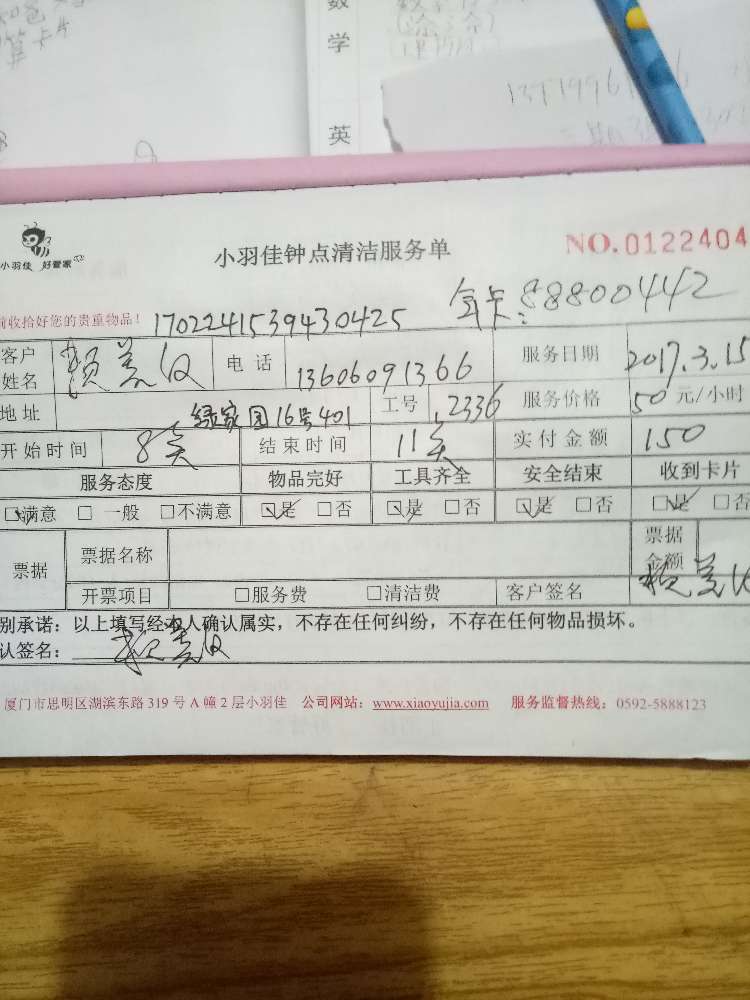 数
学
英
小羽佳 好管家
小羽佳钟点清洁服务单
NO.0122404
前收拾好您的贵重物品！
1702241539430425
卡：88800442
客户姓名
电 话 13606091366
服务日期 2017.3.15
地 址 绿家园16号401
工号 2336
服务价格 50 元/小时
开始时间 8
结束时间 11
实付金额 150
服务态度 物品完好 工具齐全 安全结束 收到卡片
□满意 □一般 □不满意 □是 □否 □是 □否 □是 □否 □是 □否
票据 票据名称 票据金额
开票项目 □服务费 □清洁费 客户签名
别承诺：以上填写经本人确认属实，不存在任何纠纷，不存在任何物品损坏。
认签名：
厦门市思明区湖滨东路319号A幢2层小羽佳 公司网站：www.xiaoyujia.com 服务监督热线：0592-5888123